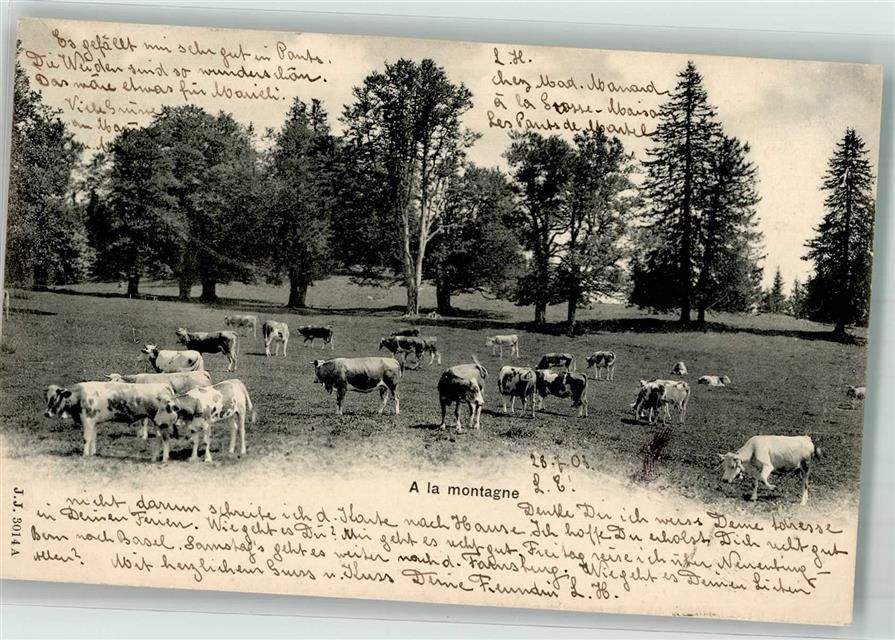 Es gefällt mir sehr gut in Pants.
Die Weiden sind so wunderschön.
Das wäre etwas für Marieli.
Viele Grüsse
an
L. H.
chez Mad. Manard
à la Grosse-Maison
Les Ponts de Martel
A la montagne
28. 7. 03.
L. E!
J.J. 3014 A
Denke Dir ich weiss Deine Adresse
nicht darum schreibe ich d. Karte nach Hause. Ich hoffe Du erholst Dich recht gut
in Deinen Ferien. Wie geht es Dir? Mir geht es recht gut. Freitag reise ich über Neuenburg-
Bern nach Basel. Samstags geht es weiter nach d. Farnsburg. Wie geht es Deinen Lieben
allen? Mit herzlichem Gruss u. Kuss Deine Freundin L. H.